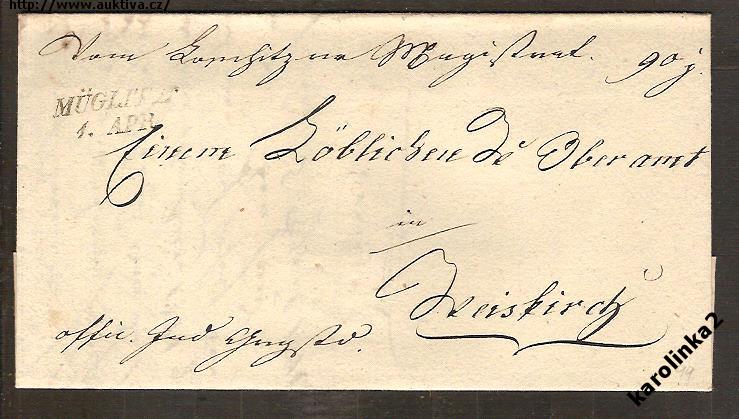 http://www.auktiva.cz/
Vom Lomhitzer Magistrat. 90 j.
MÜGLITZ
1. APR
Einem Löblichen Oberamt
in
Weiskirch
offic.
karolinka2